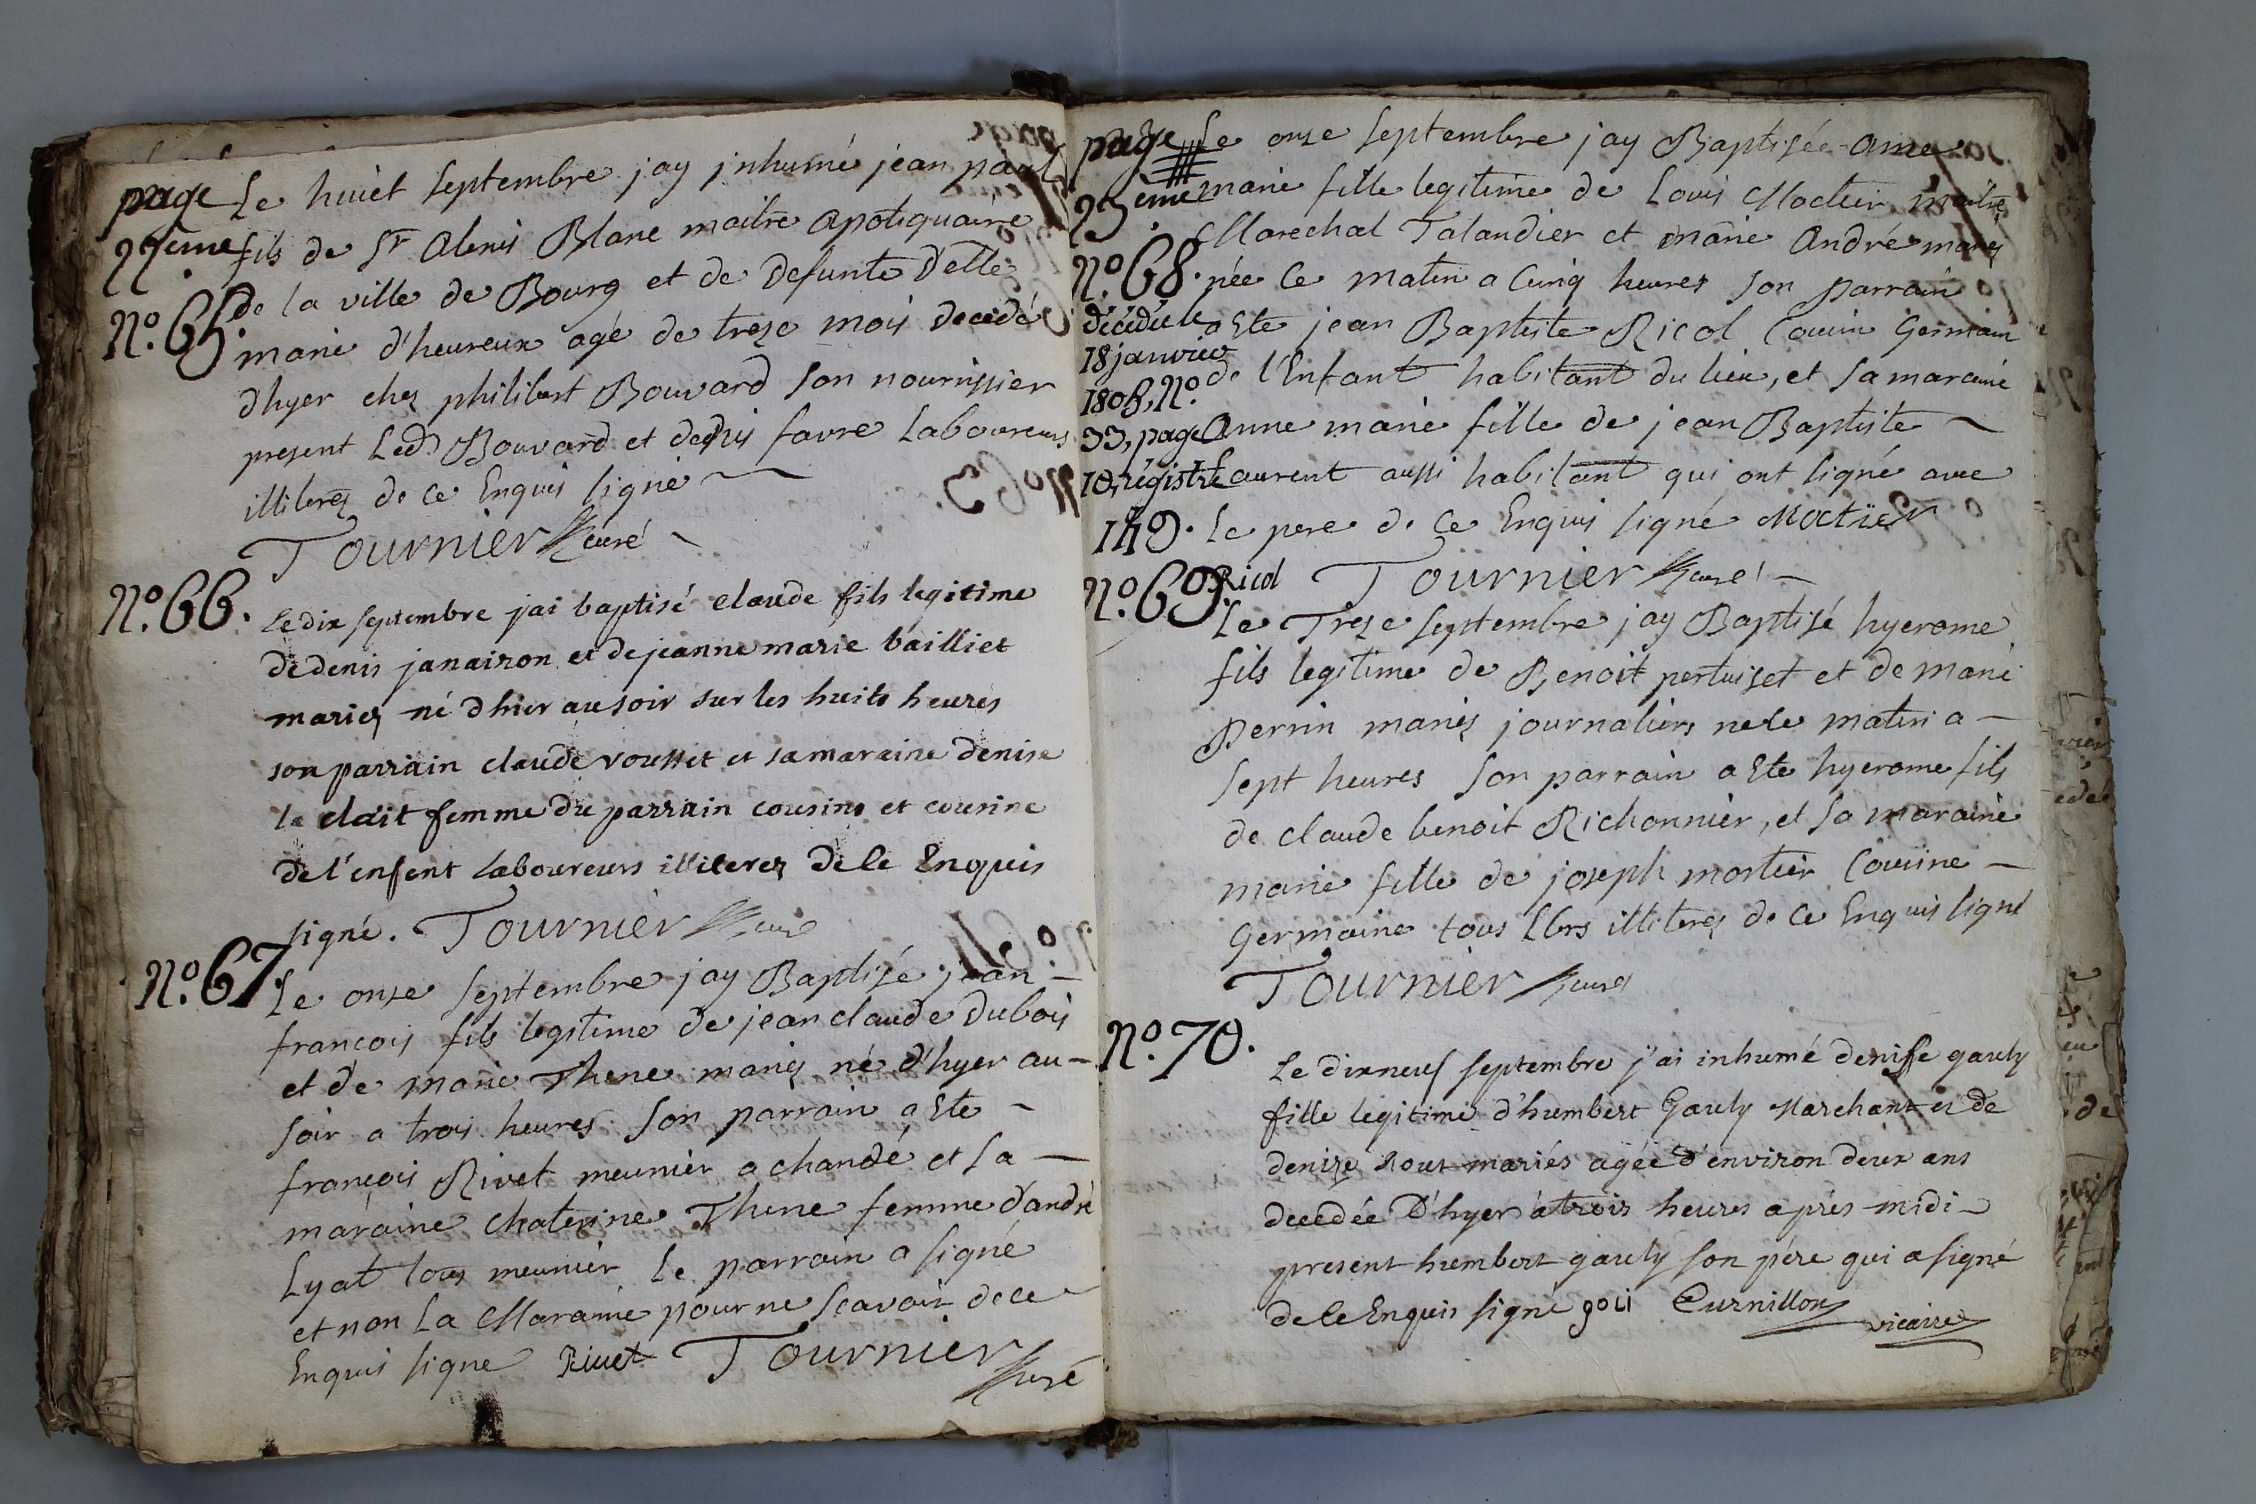 page
22eme
Le huict septembre jay jnhumé jean paul
fils de Sr Alexis Blanc maitre apotiquaire
No. 65.
de la ville de Bourg et de defunte Delle
marie d'heureux agé de treze mois decedé
dhyer chez philibert Bouvard son nourrissier
present Led Bouvard et denis favre Laboureurs
illiterez de ce Enquis signé
Tournier curé
No. 66.
Le dix septembre j'ai baptisé claude fils legitime
de denis janairon et de jeanne marie bailliet
mariez né dhier au soir sur les huits heures
son parrain claude vousset et sa maraine denise
la clait femme du parrain cousins et cousine
de l'enfent Laboureurs illiterez de ce Enquis
signé. Tournier curé
No. 67.
Le onze septembre jay Baptisé jean
francois fils legitime de jean claude Dubois
et de marie Thene mariez né d'hyer au
soir a trois heures son parrain a Ete
francois Rivet meunier a chandé et sa
maraine chaterine Thene femme d'andré
Lyat tous meunier Le parrain a signé
et non La Maraine pour ne scavoir de ce
Enquis signe Rivet Tournier
curé
page
23eme
Le onze septembre jay Baptisée Anne
marie fille legitime de Louis Moctier maitre
Marechal Talandier et marie André mariez
No. 68.
née ce matin a cinq heures son parrain
a Ete jean Baptiste Ricol Cousin Germain
de l'Enfant habitant du lieu, et sa maraine
Anne marie fille de jean Baptiste
Laurent aussi habitant qui ont signé avec
Le pere de ce Enquis signé Moctier
décédé le
18 janvier
1808, No.
33, page
10, régistre
149.
Ricol Tournier curé
No. 69.
Le Treze septembre jay Baptisé hyerome
fils legitime de Benoit pertuiset et de marie
perrin mariez journaliers né le matin a
sept heures son parrain a Ete hyerome fils
de claude benoit Richonnier, et sa maraine
marie fille de joseph mortier Cousine
Germaine tous Lbrs illiterez de ce Enquis signé
Tournier curé
No. 70.
Le dixneuf septembre j'ai inhumé denise gauly
fille legitime d'humbert Gauly Marchant et de
denize roux mariés agée d'environ deux ans
decedée D'hyer à trois heures aprés midi
present humbert gauly son pére qui a signé
de ce Enquis signé goli Curnillon
vicaire